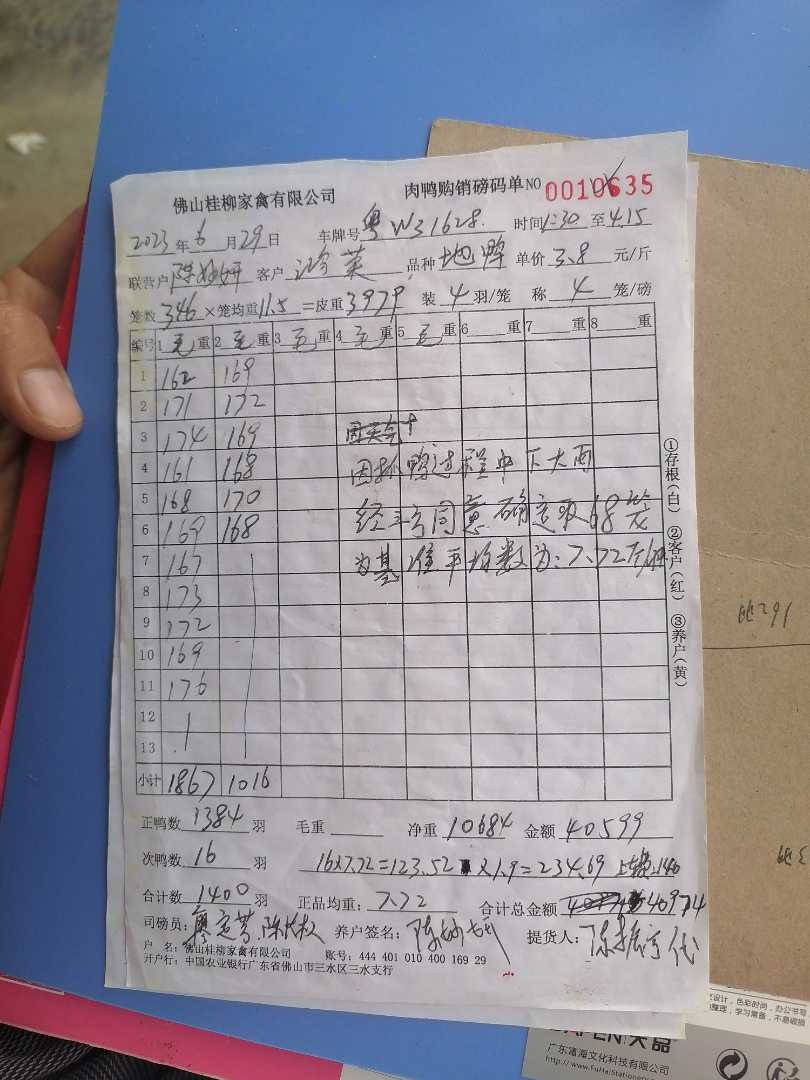 佛山桂柳家禽有限公司 肉鸭购销磅码单 NO 0010635
2023年6月29日 车牌号 粤W31628. 时间1:30至4.15
联营户 客户 品种 地鸭 单价 3.8 元/斤
笼数 346 ×笼均重 11.5 =皮重 3979 装 4 羽/笼 称 4 笼/磅
编号 1 毛 重 2 毛 重 3 毛 重 4 毛 重 5 毛 重 6 重 7 重 8 重
1 162 169
2 171 172
3 174 169
4 161 168 因抓鸭过程中下大雨
5 168 170 经三方同意确定取68笼
6 169 168
7 167 为基准平均数为:7.72斤/
8 173
9 172
10 169
11 176
12
13
小计 1867 1016
①存根(白) ②客户(红) ③养户(黄)
正鸭数 1384 羽 毛重 净重 10684 金额 40599
次鸭数 16 羽 16×7.72=123.52 ×1.9=234.69
合计数 1400 羽 正品均重: 7.72 合计总金额 40974
司磅员: 养户签名: 提货人: 代
户 名: 佛山桂柳家禽有限公司 账号: 444 401 010 400 169 29
开户行: 中国农业银行广东省佛山市三水区三水支行
广东富海文化科技有限公司